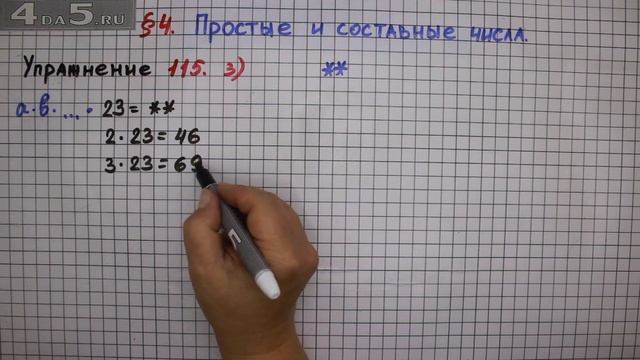 4DA5.RU
§4. Простые и составные числа.
Упражнение 115. 3) **
а·в·...·23=**
2·23=46
3·23=69